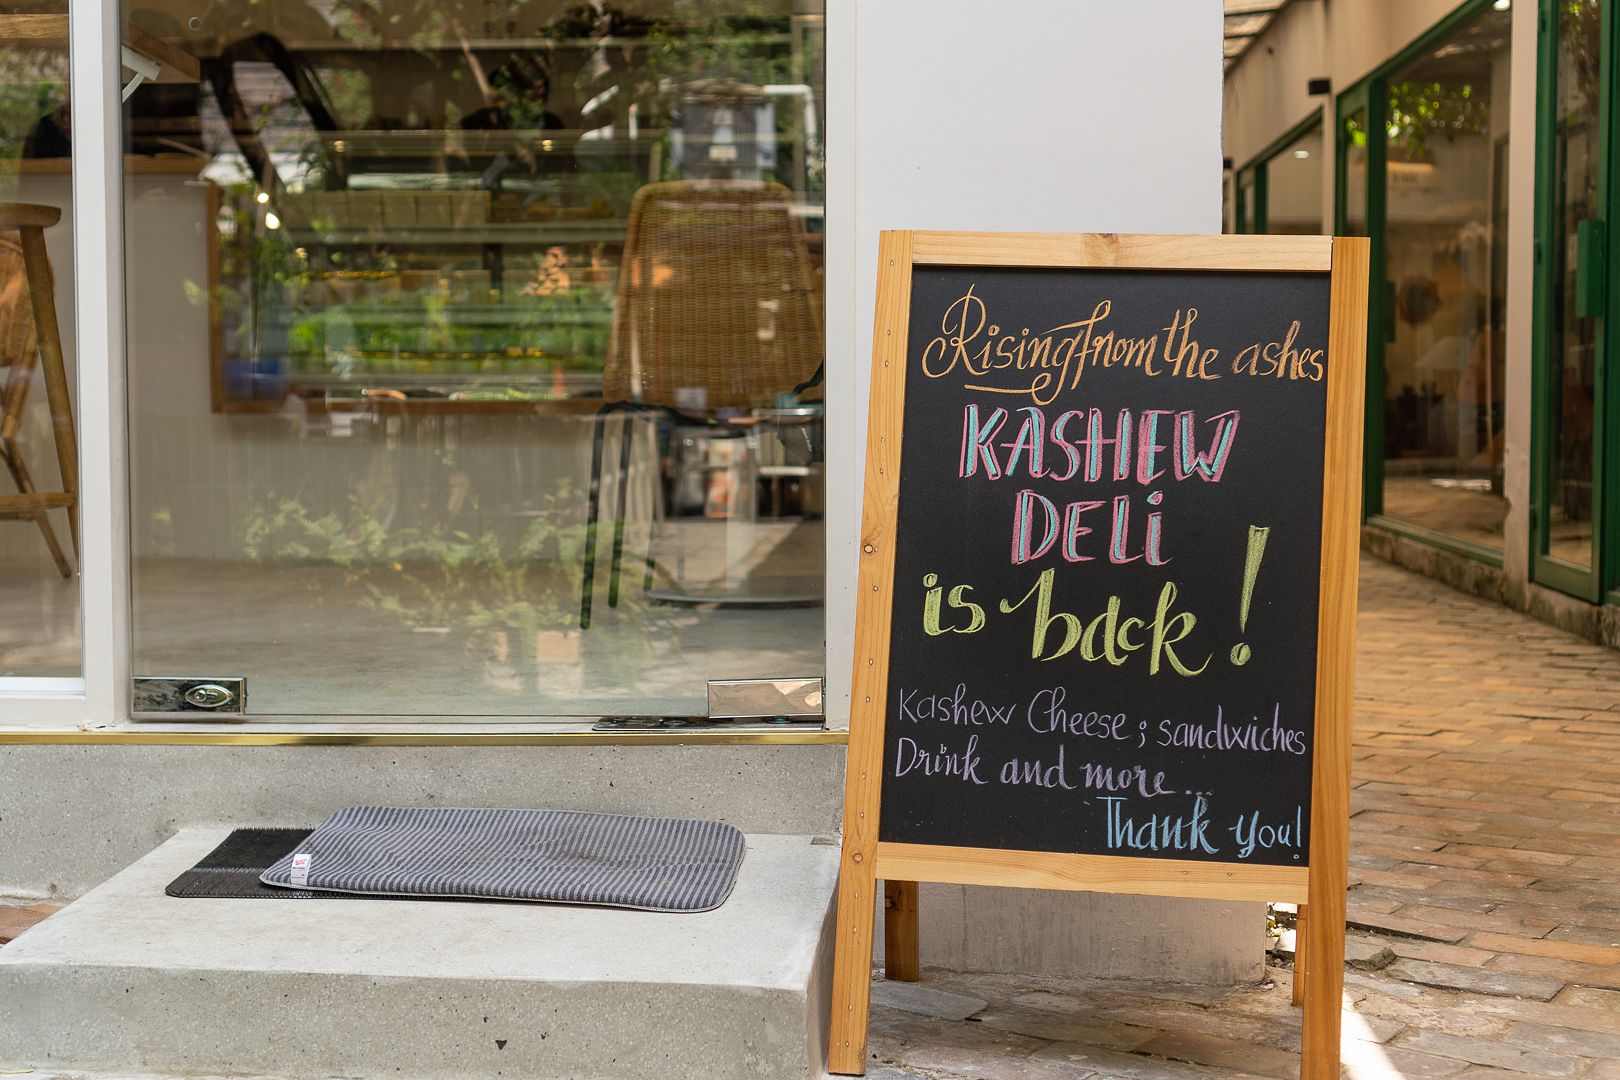 Rising from the ashes
KASHEW
DELi
is back!
Kashew Cheese; sandwiches
Drink and more...
Thank you!